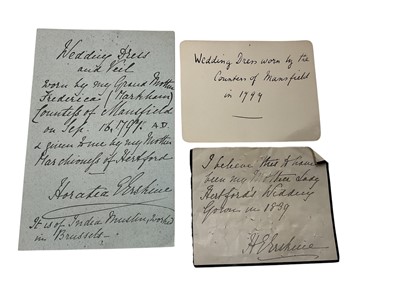 Wedding Dress
and Veil
worn by my Grand Mother
Frederica (Markham)
Countess of Mansfield
on Sep. 16, 1797. A.D.
& given to me by my Mother
Marchioness of Hertford
Horatia E Erskine
It is of India Muslin, worked
in Brussels.
Wedding Dress worn by the
Countess of Mansfield
in 1799
I believe this to have
been my Mother Lady
Hertford's Wedding
Gown in 1839
H E Erskine